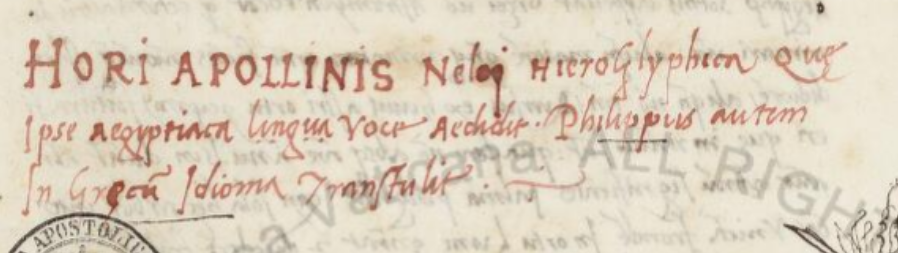 HORI APOLLINIS Neloi Hieroglyphica Quę
Ipse Aegyptiaca lingua Voce Aedidit. Philippus autem
In Gręcū Idioma Transtulit.
ALL RIGH
APOSTOLIC